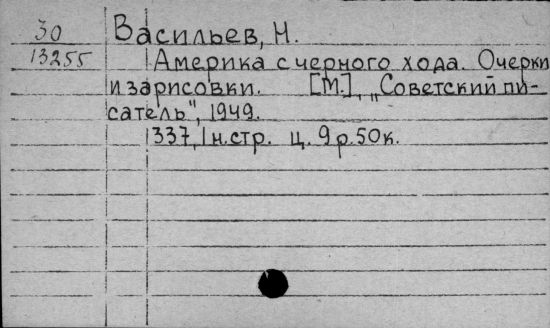 30 Васильев, Н.
13255 Америка с черного хода. Очерки
и зарисовки. [М.], „Советский пи-
сатель", 1949.
337, 1 н.стр. ц. 9 р. 50 к.